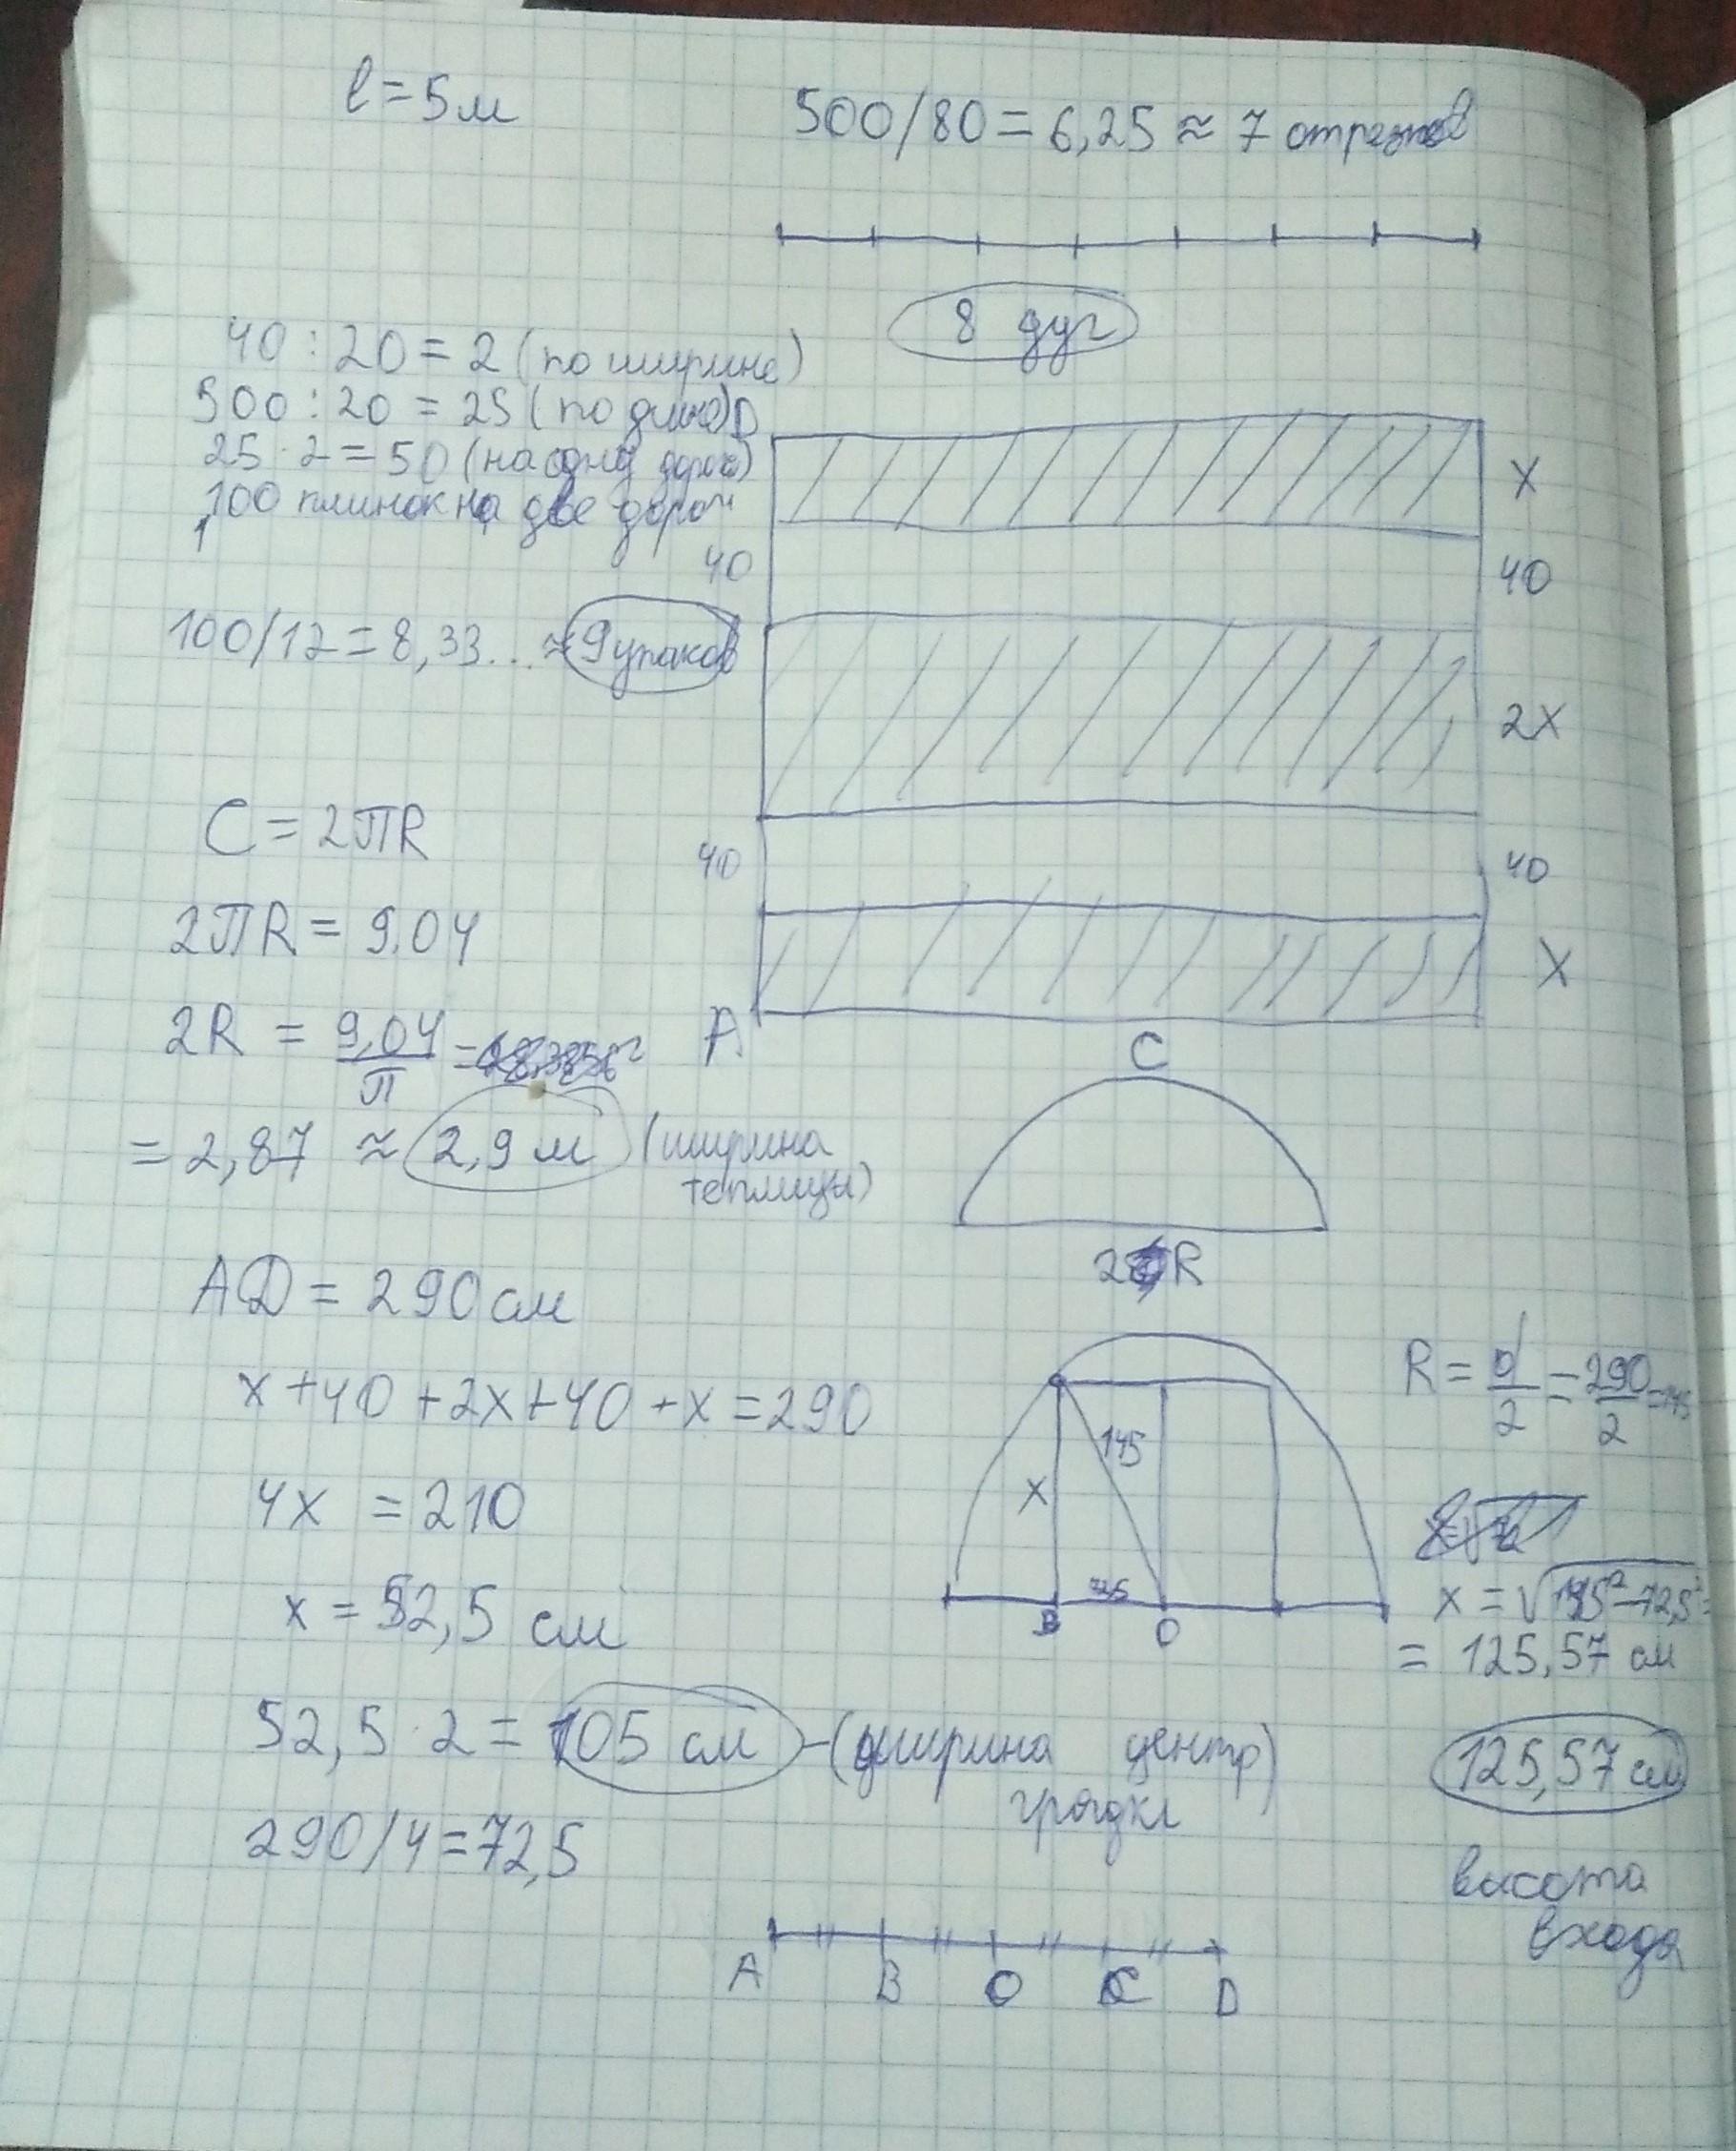 l = 5м
500/80 = 6,25 ≈ 7 отрезков
8 дуг
40 : 20 = 2 (по ширине)
500 : 20 = 25 (по длине)
25 · 2 = 50 (на одну дорож)
100 плиток на две дорож
100/12 = 8,33... ≈ 9 упаков
D
X
40
40
2X
40
40
X
A
C = 2ПR
2ПR = 9,04
2R = 9,04/П =
= 2,87 ≈ 2,9 м (ширина
теплицы)
C
2R
AD = 290 см
x + 40 + 2x + 40 + x = 290
4x = 210
x = 52,5 см
52,5 · 2 = 105 см - (ширина центр)
грядки
290/4 = 72,5
145
X
72,5
B
O
R = d/2 = 290/2 = 145
x = √145² - 72,5² =
= 125,57 см
125,57 см
высота
входа
A B O C D